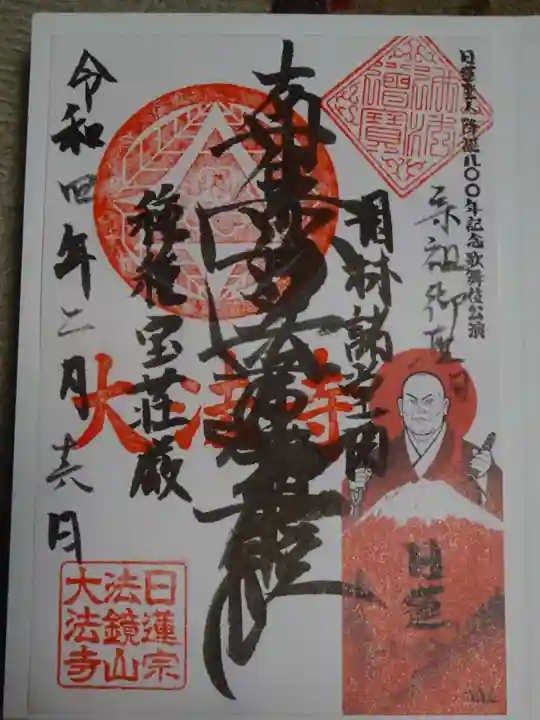 日蓮聖人降誕八〇〇年記念歌舞伎公演
宗祖御聖日
日蓮
園林諸堂閣
南無妙法蓮華経
種種宝荘厳
大法寺
令和四年二月十六日
日蓮宗
法鏡山
大法寺